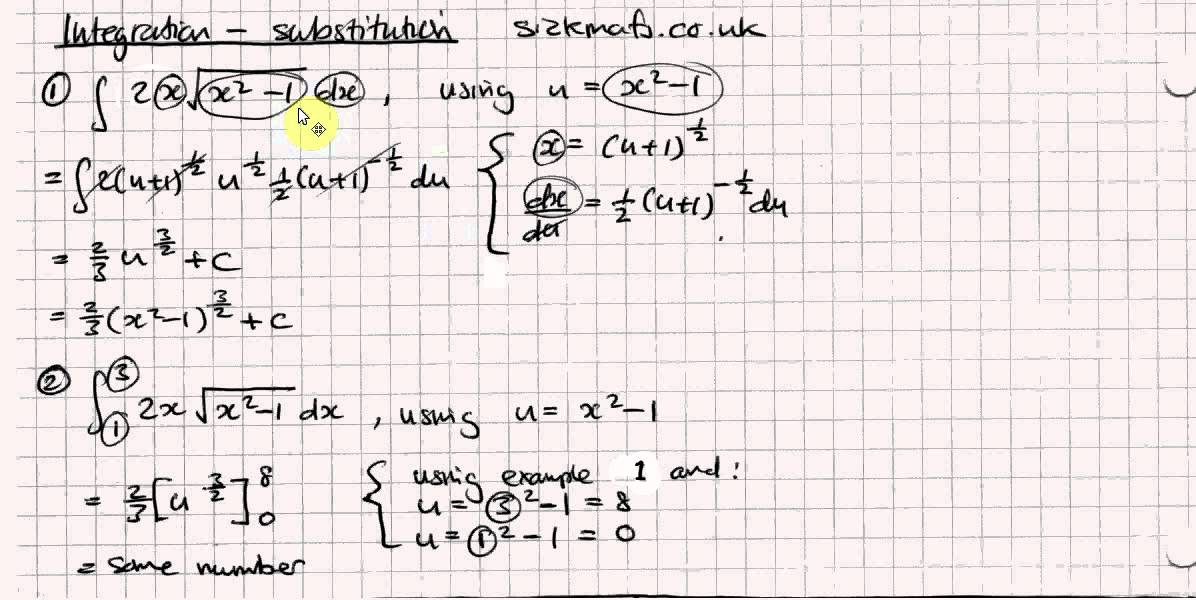 Integration – substitution sizkmafs.co.uk
① ∫ 2x√(x² –1) dx , using u = x²–1
= ∫ 2(u+1)^½ u^½ ½(u+1)^–½ du { x = (u+1)^½
dx/du = ½(u+1)^–½ du
= ⅔ u^3/2 + c
= ⅔ (x²–1)^3/2 + c
② ∫₁³ 2x √(x²–1) dx , using u = x²–1
= ⅔ [u^3/2]₀⁸ { using example 1 and :
u = 3² –1 = 8
u = 1² – 1 = 0
= some number